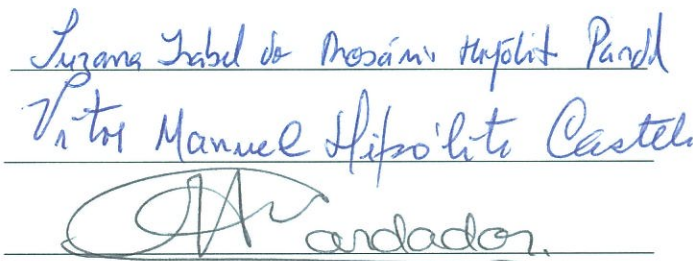 Suzana Isabel do Rosário Hipólit Pardal
Vitor Manuel Hipólito Castela
Cardador.